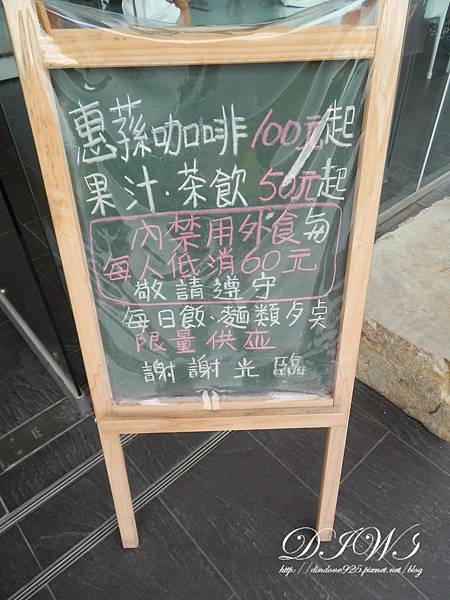 惠蓀咖啡100元起
果汁·茶飲50元起
內禁用外食每
每人低消60元
敬請遵守
每日飯、麵類 桌
限量供应
謝謝光臨
DIWI
http://dindone925.pixnet.net/blog